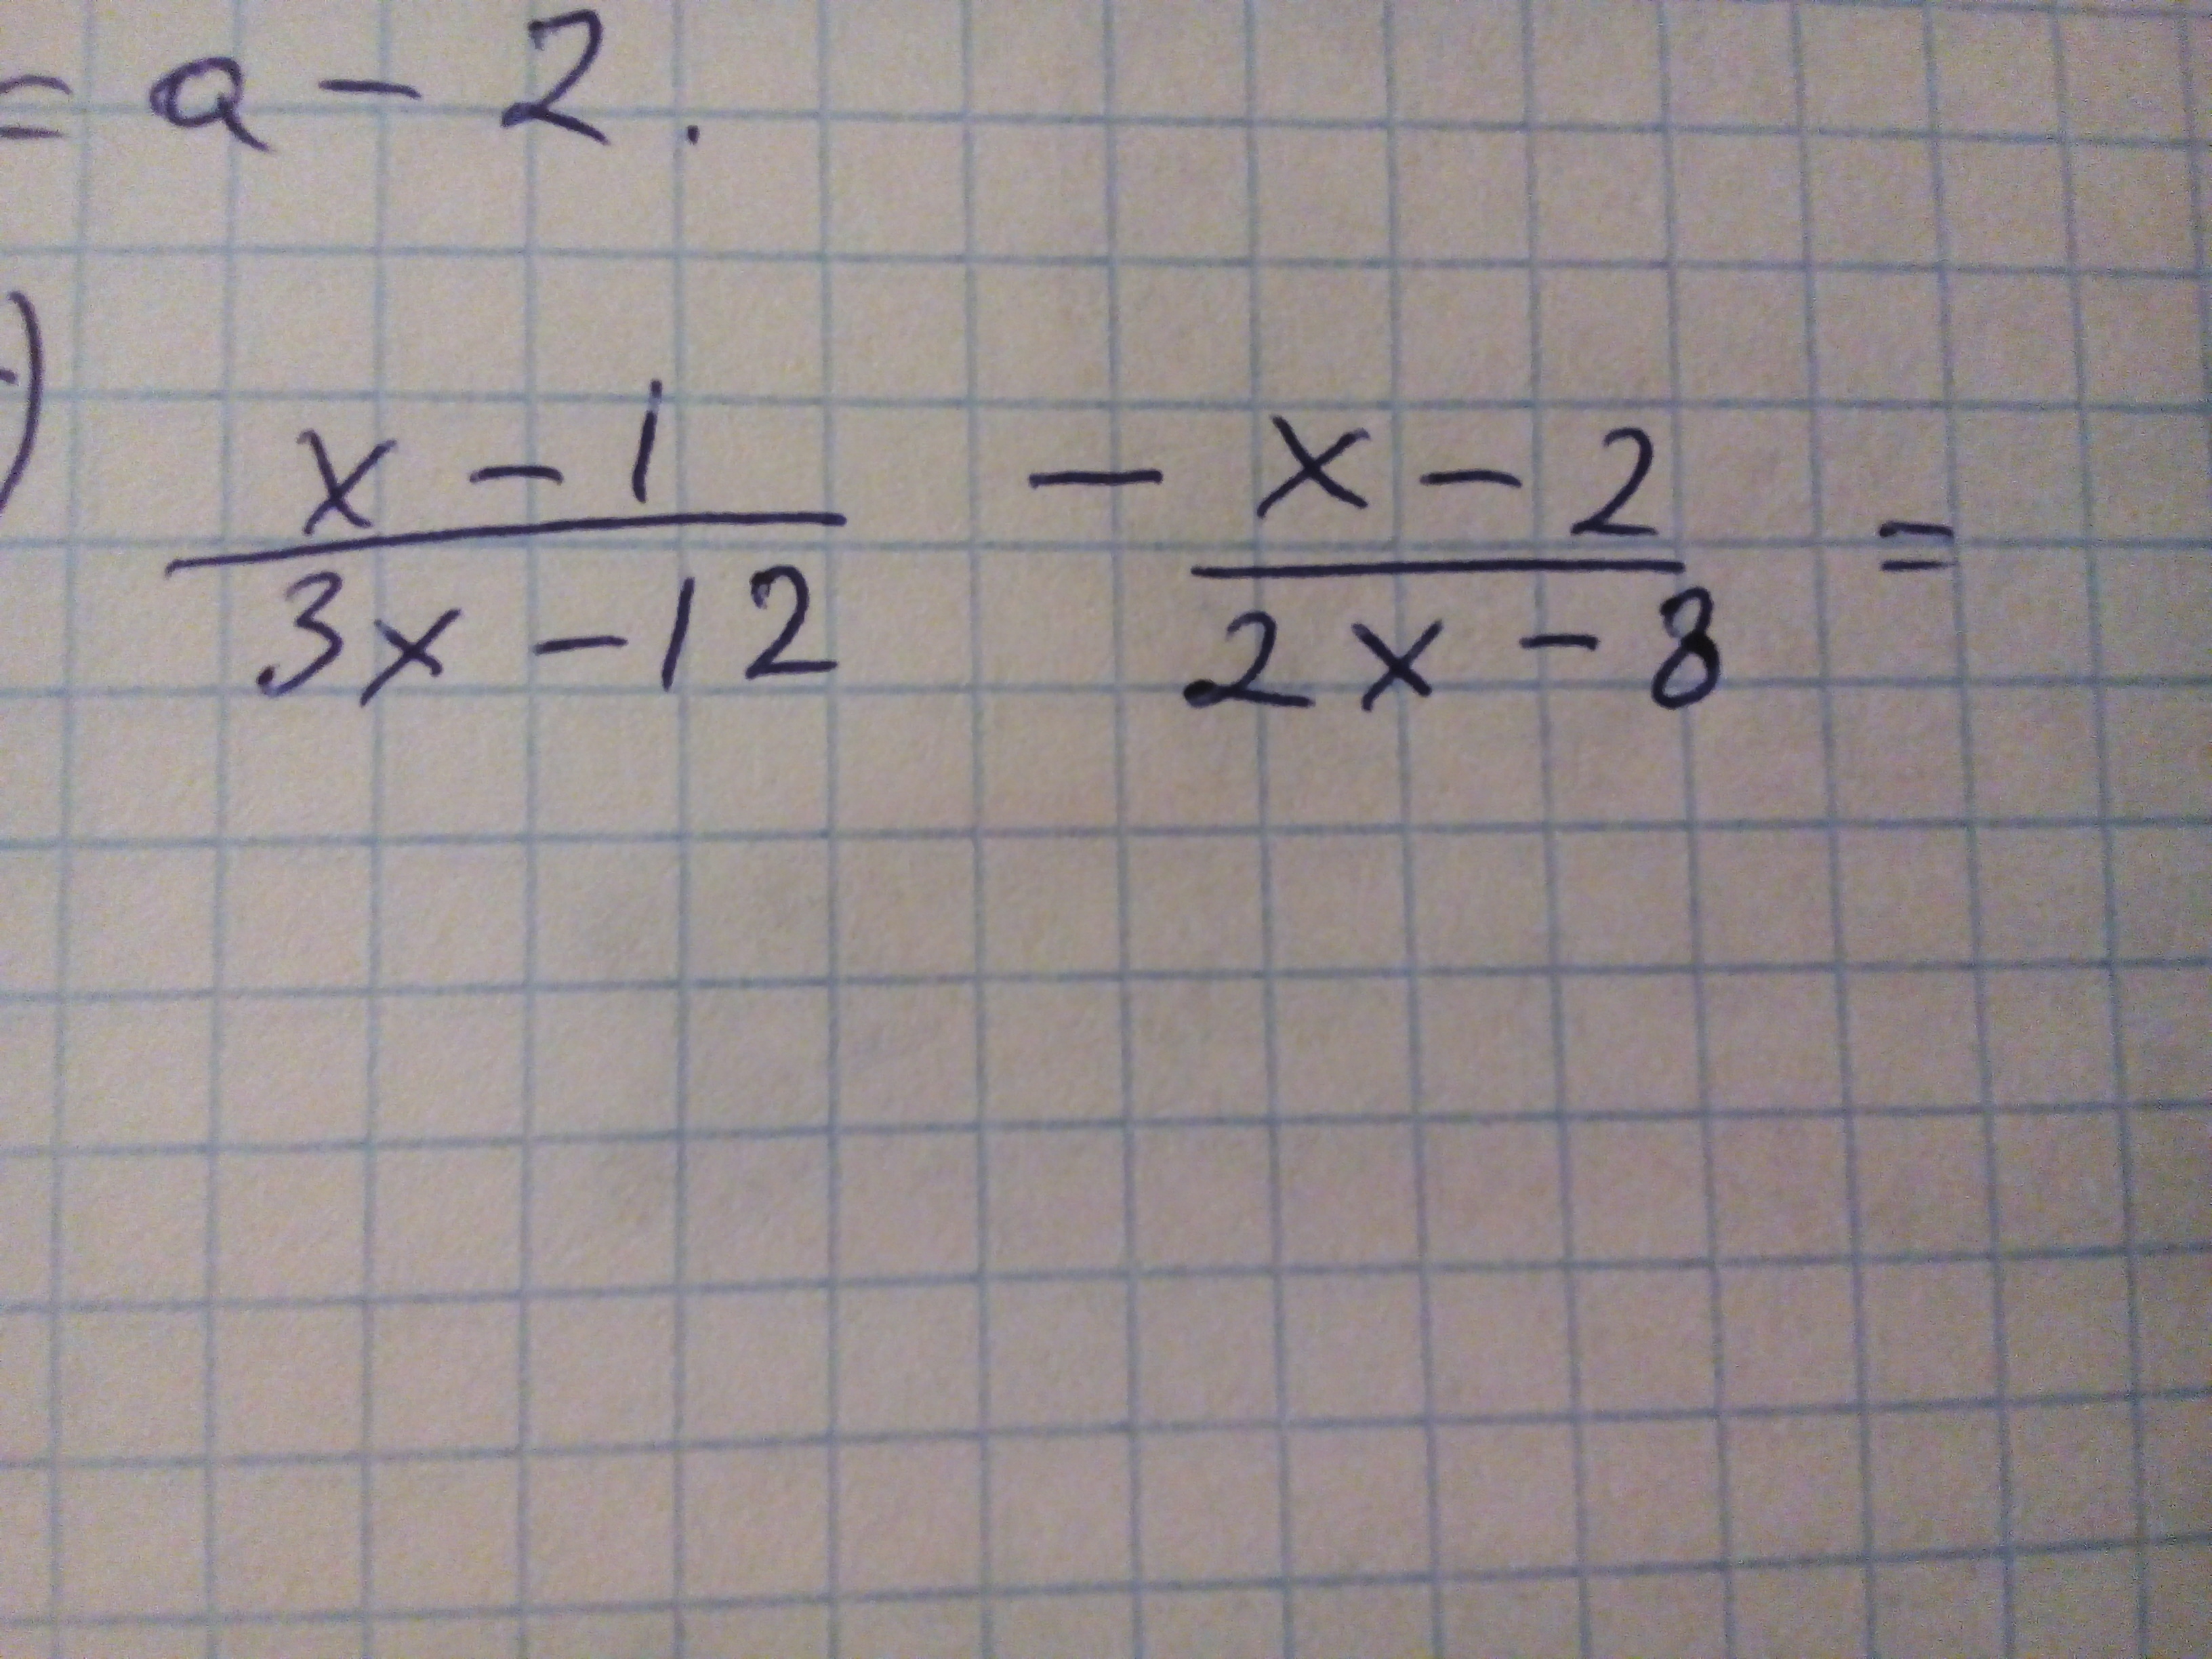 = a - 2.
) x - 1 / 3x - 12 - x - 2 / 2x - 8 =